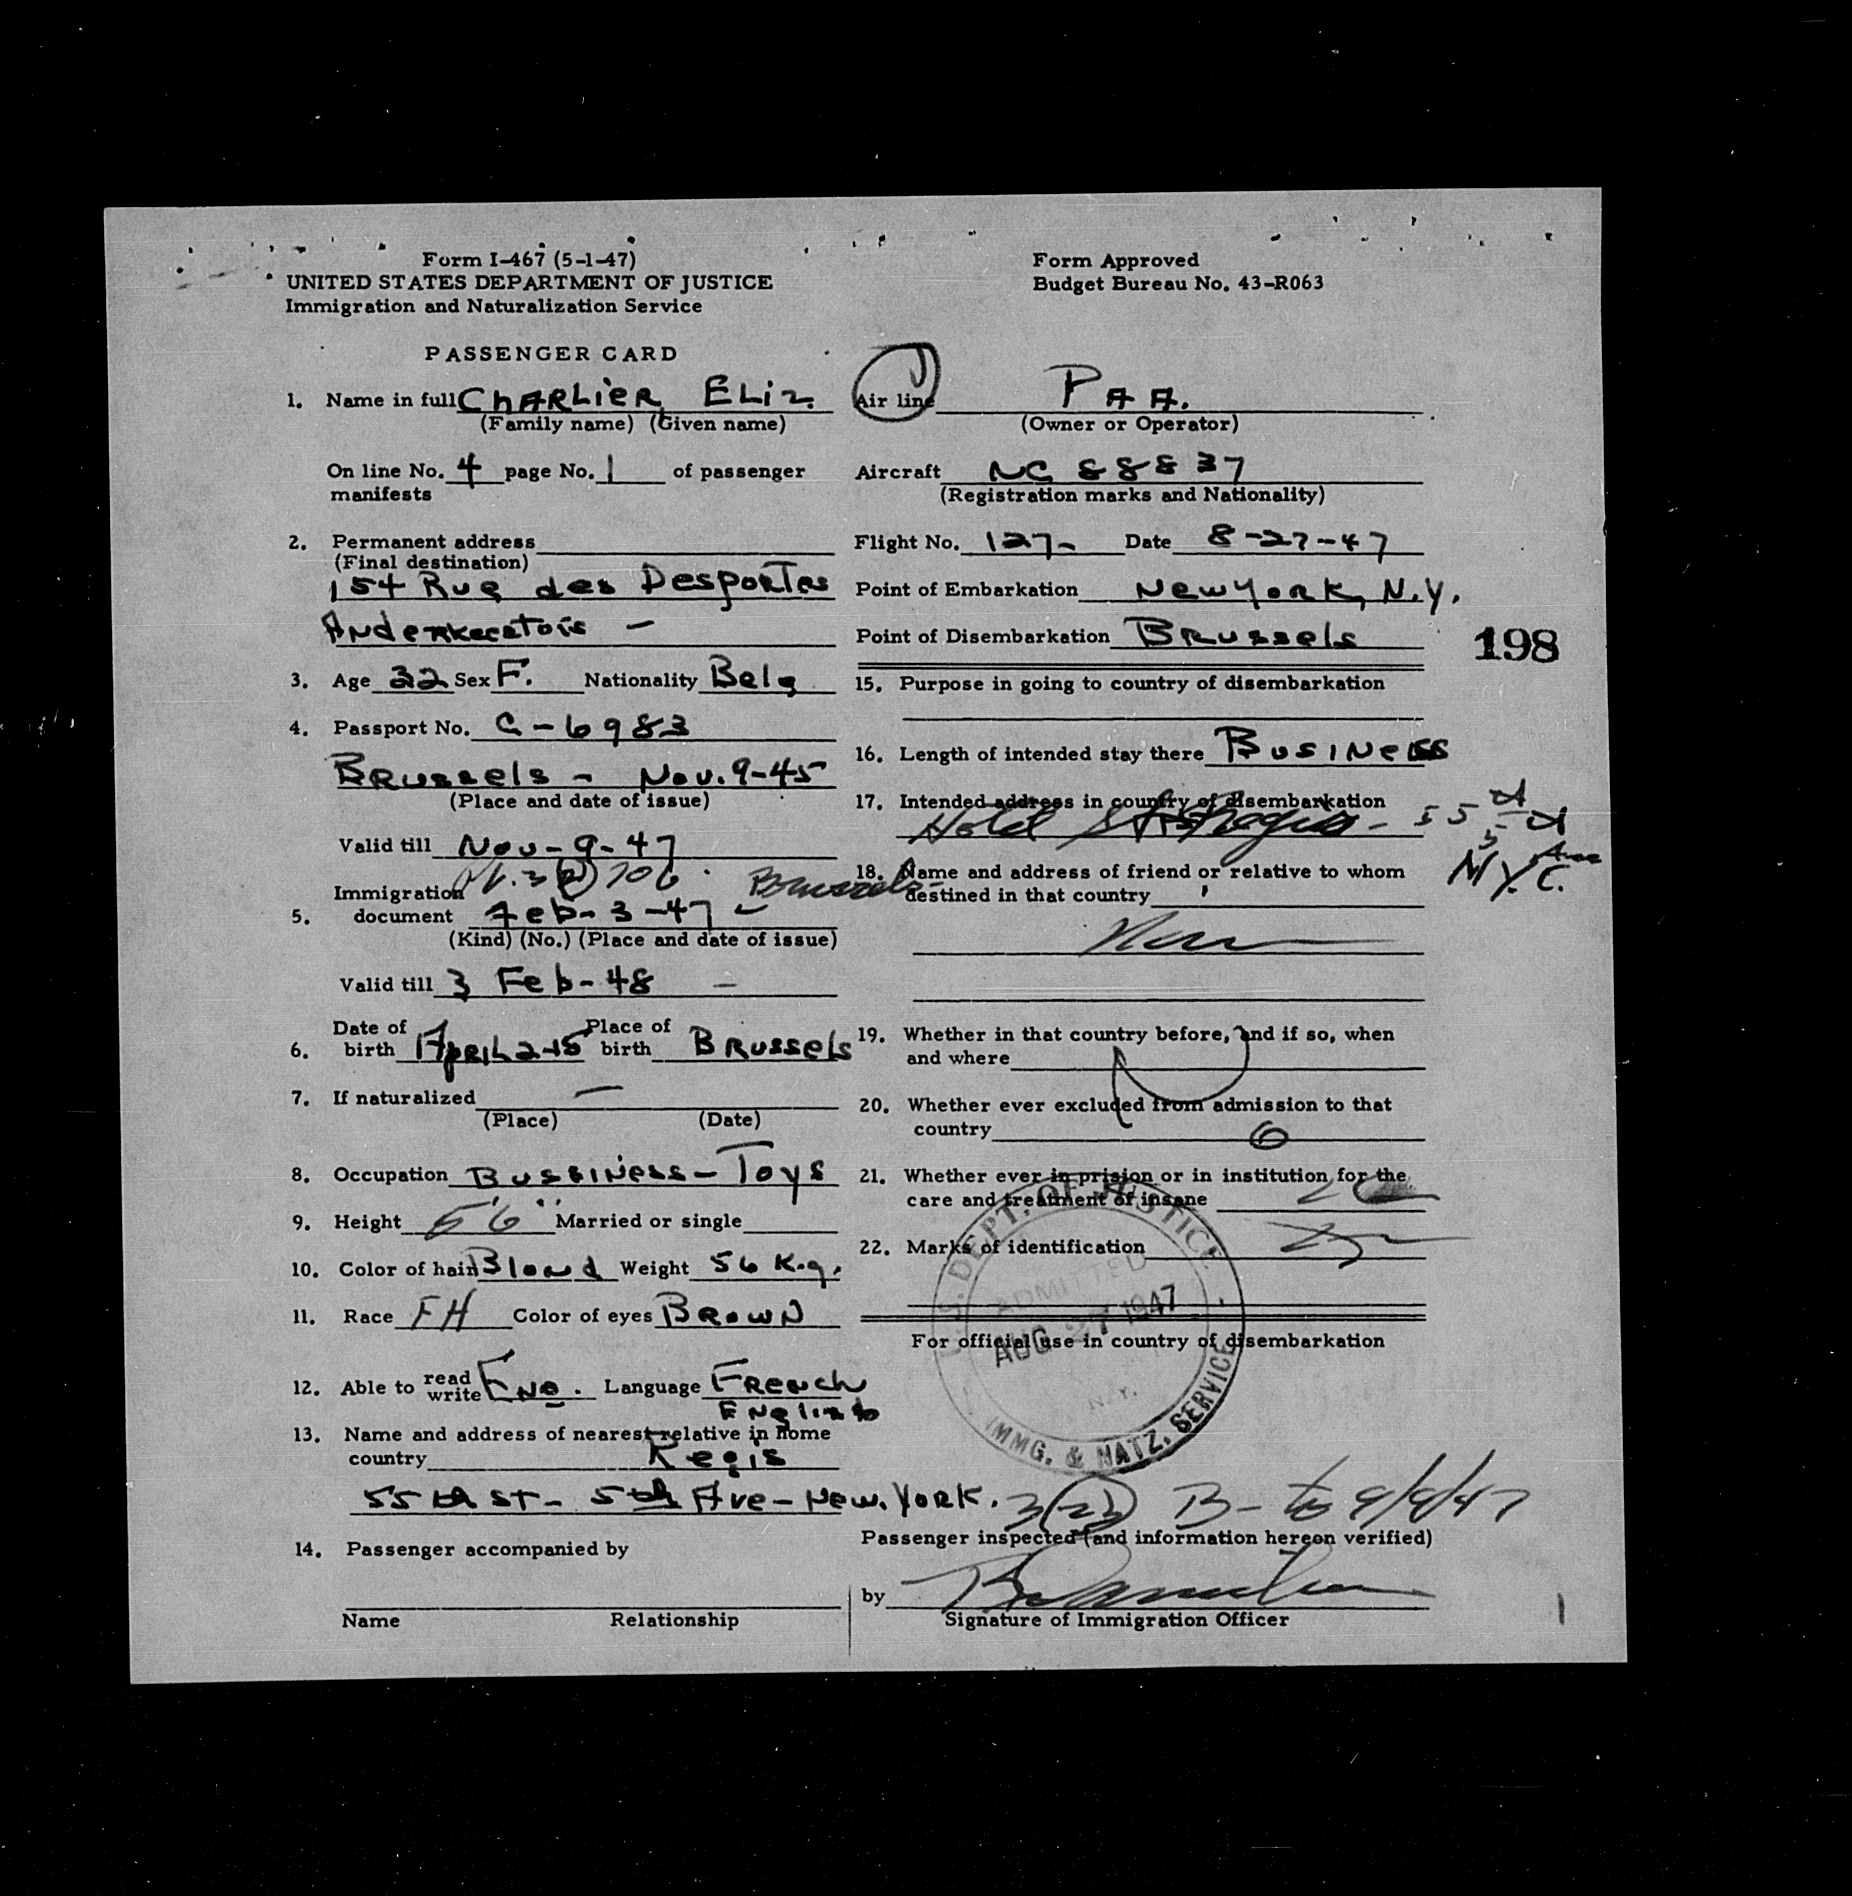 Form I-467 (5-1-47)
UNITED STATES DEPARTMENT OF JUSTICE
Immigration and Naturalization Service
Form Approved
Budget Bureau No. 43-R063
PASSENGER CARD
1. Name in full ChARLiER ELiz.
(Family name) (Given name)
On line No. 4 page No. 1 of passenger
manifests
2. Permanent address
(Final destination)
154 Rue des
3. Age 32 Sex F. Nationality Belg
4. Passport No. C-6983
BRussels - Nov. 9-45
(Place and date of issue)
Valid till Nov-9-47
Immigration 706 Brussels
5. document Feb-3-47
(Kind) (No.) (Place and date of issue)
Valid till 3 Feb-48
Date of Place of
6. birth ApRiL 2-15 birth BRussels
7. If naturalized —
(Place) (Date)
8. Occupation Bussiness - Toys
9. Height 5'6" Married or single
10. Color of hair Blond Weight 56 K.g.
11. Race FH Color of eyes BRowN
12. Able to read write Language FRench
English
13. Name and address of nearest relative in home
country Regis
55th ST - 5th Ave - New. YoRK.
14. Passenger accompanied by
Name Relationship
Air line PAA.
(Owner or Operator)
Aircraft NC 88837
(Registration marks and Nationality)
Flight No. 127- Date 8-27-47
Point of Embarkation New YoRK, N.Y.
Point of Disembarkation BRussels
198
15. Purpose in going to country of disembarkation
16. Length of intended stay there BusiNess
17. Intended address in country of disembarkation
Hotel St Regis - 55
N.Y.C.
18. Name and address of friend or relative to whom
destined in that country
19. Whether in that country before, and if so, when
and where
20. Whether ever excluded from admission to that
country
21. Whether ever in prision or in institution for the
care and treatment of insane
22. Marks of identification
For official use in country of disembarkation
U.S. DEPT. OF JUSTICE
ADMITTED
AUG 27 1947
N.Y.
IMMG. & NATZ. SERVICE
B-
Passenger inspected (and information hereon verified)
by
Signature of Immigration Officer